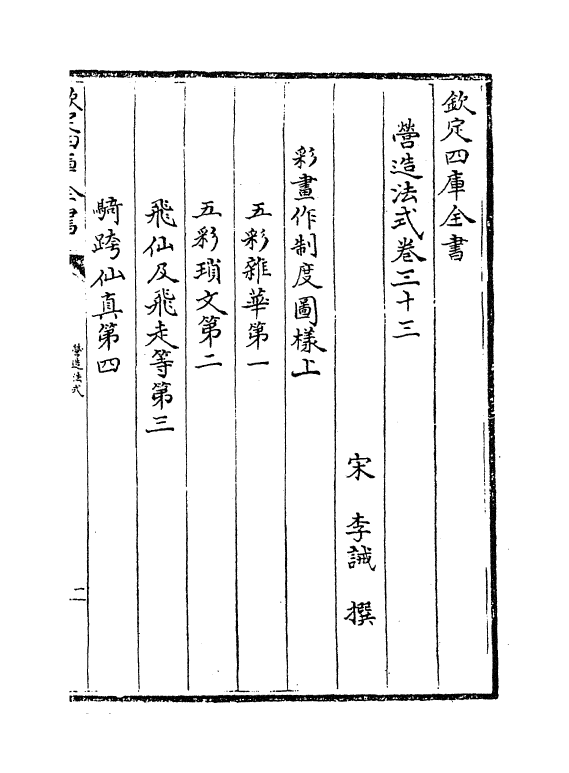 欽定四庫全書
營造法式卷三十三
宋 李誡 撰
彩畫作制度圖樣上
五彩雜華第一
五彩瑣文第二
飛仙及飛走等第三
騎跨仙真第四
欽定四庫全書
營造法式
二